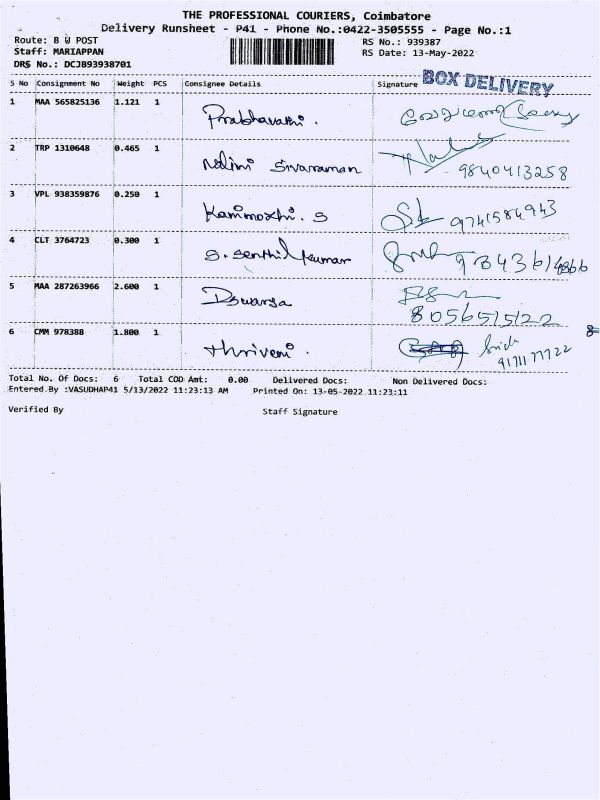 THE PROFESSIONAL COURIERS, Coimbatore
Delivery Runsheet - P41 - Phone No.:0422-3505555 - Page No.:1
Route: B W POST RS No.: 939387
Staff: MARIAPPAN RS Date: 13-May-2022
DRS No.: DCJB93938701
S No Consignment No Weight PCS Consignee Details Signature BOX DELIVERY
1 MAA 565825136 1.121 1 Prabhavathi.
2 TRP 1310648 0.465 1 Nalini Sivaraman 9840413258
3 VPL 938359876 0.250 1 Kanimozhi. S 9741584943
4 CLT 3764723 0.300 1 S. Senthil kumar
5 MAA 287263966 2.600 1 8056515122
6 CMM 978388 1.800 1 thriveni. 9171177722
Total No. Of Docs: 6 Total COD Amt: 0.00 Delivered Docs: Non Delivered Docs:
Entered By :VASUDHAP41 5/13/2022 11:23:13 AM Printed On: 13-05-2022 11:23:11
Verified By Staff Signature